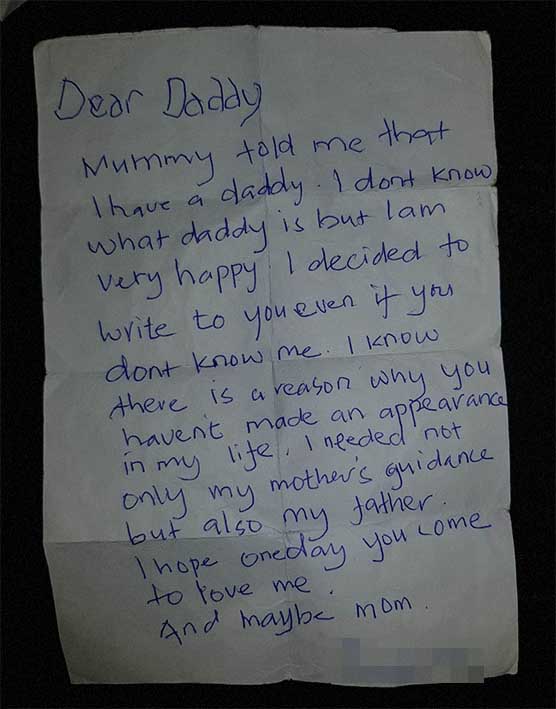 Dear Daddy
Mummy told me that
I have a daddy. I dont know
what daddy is but I am
very happy I decided to
write to you even if you
dont know me. I know
there is a reason why you
haven't made an appearance
in my life. I needed not
only my mother's guidance
but also my father.
I hope oneday you come
to love me.
And maybe mom.